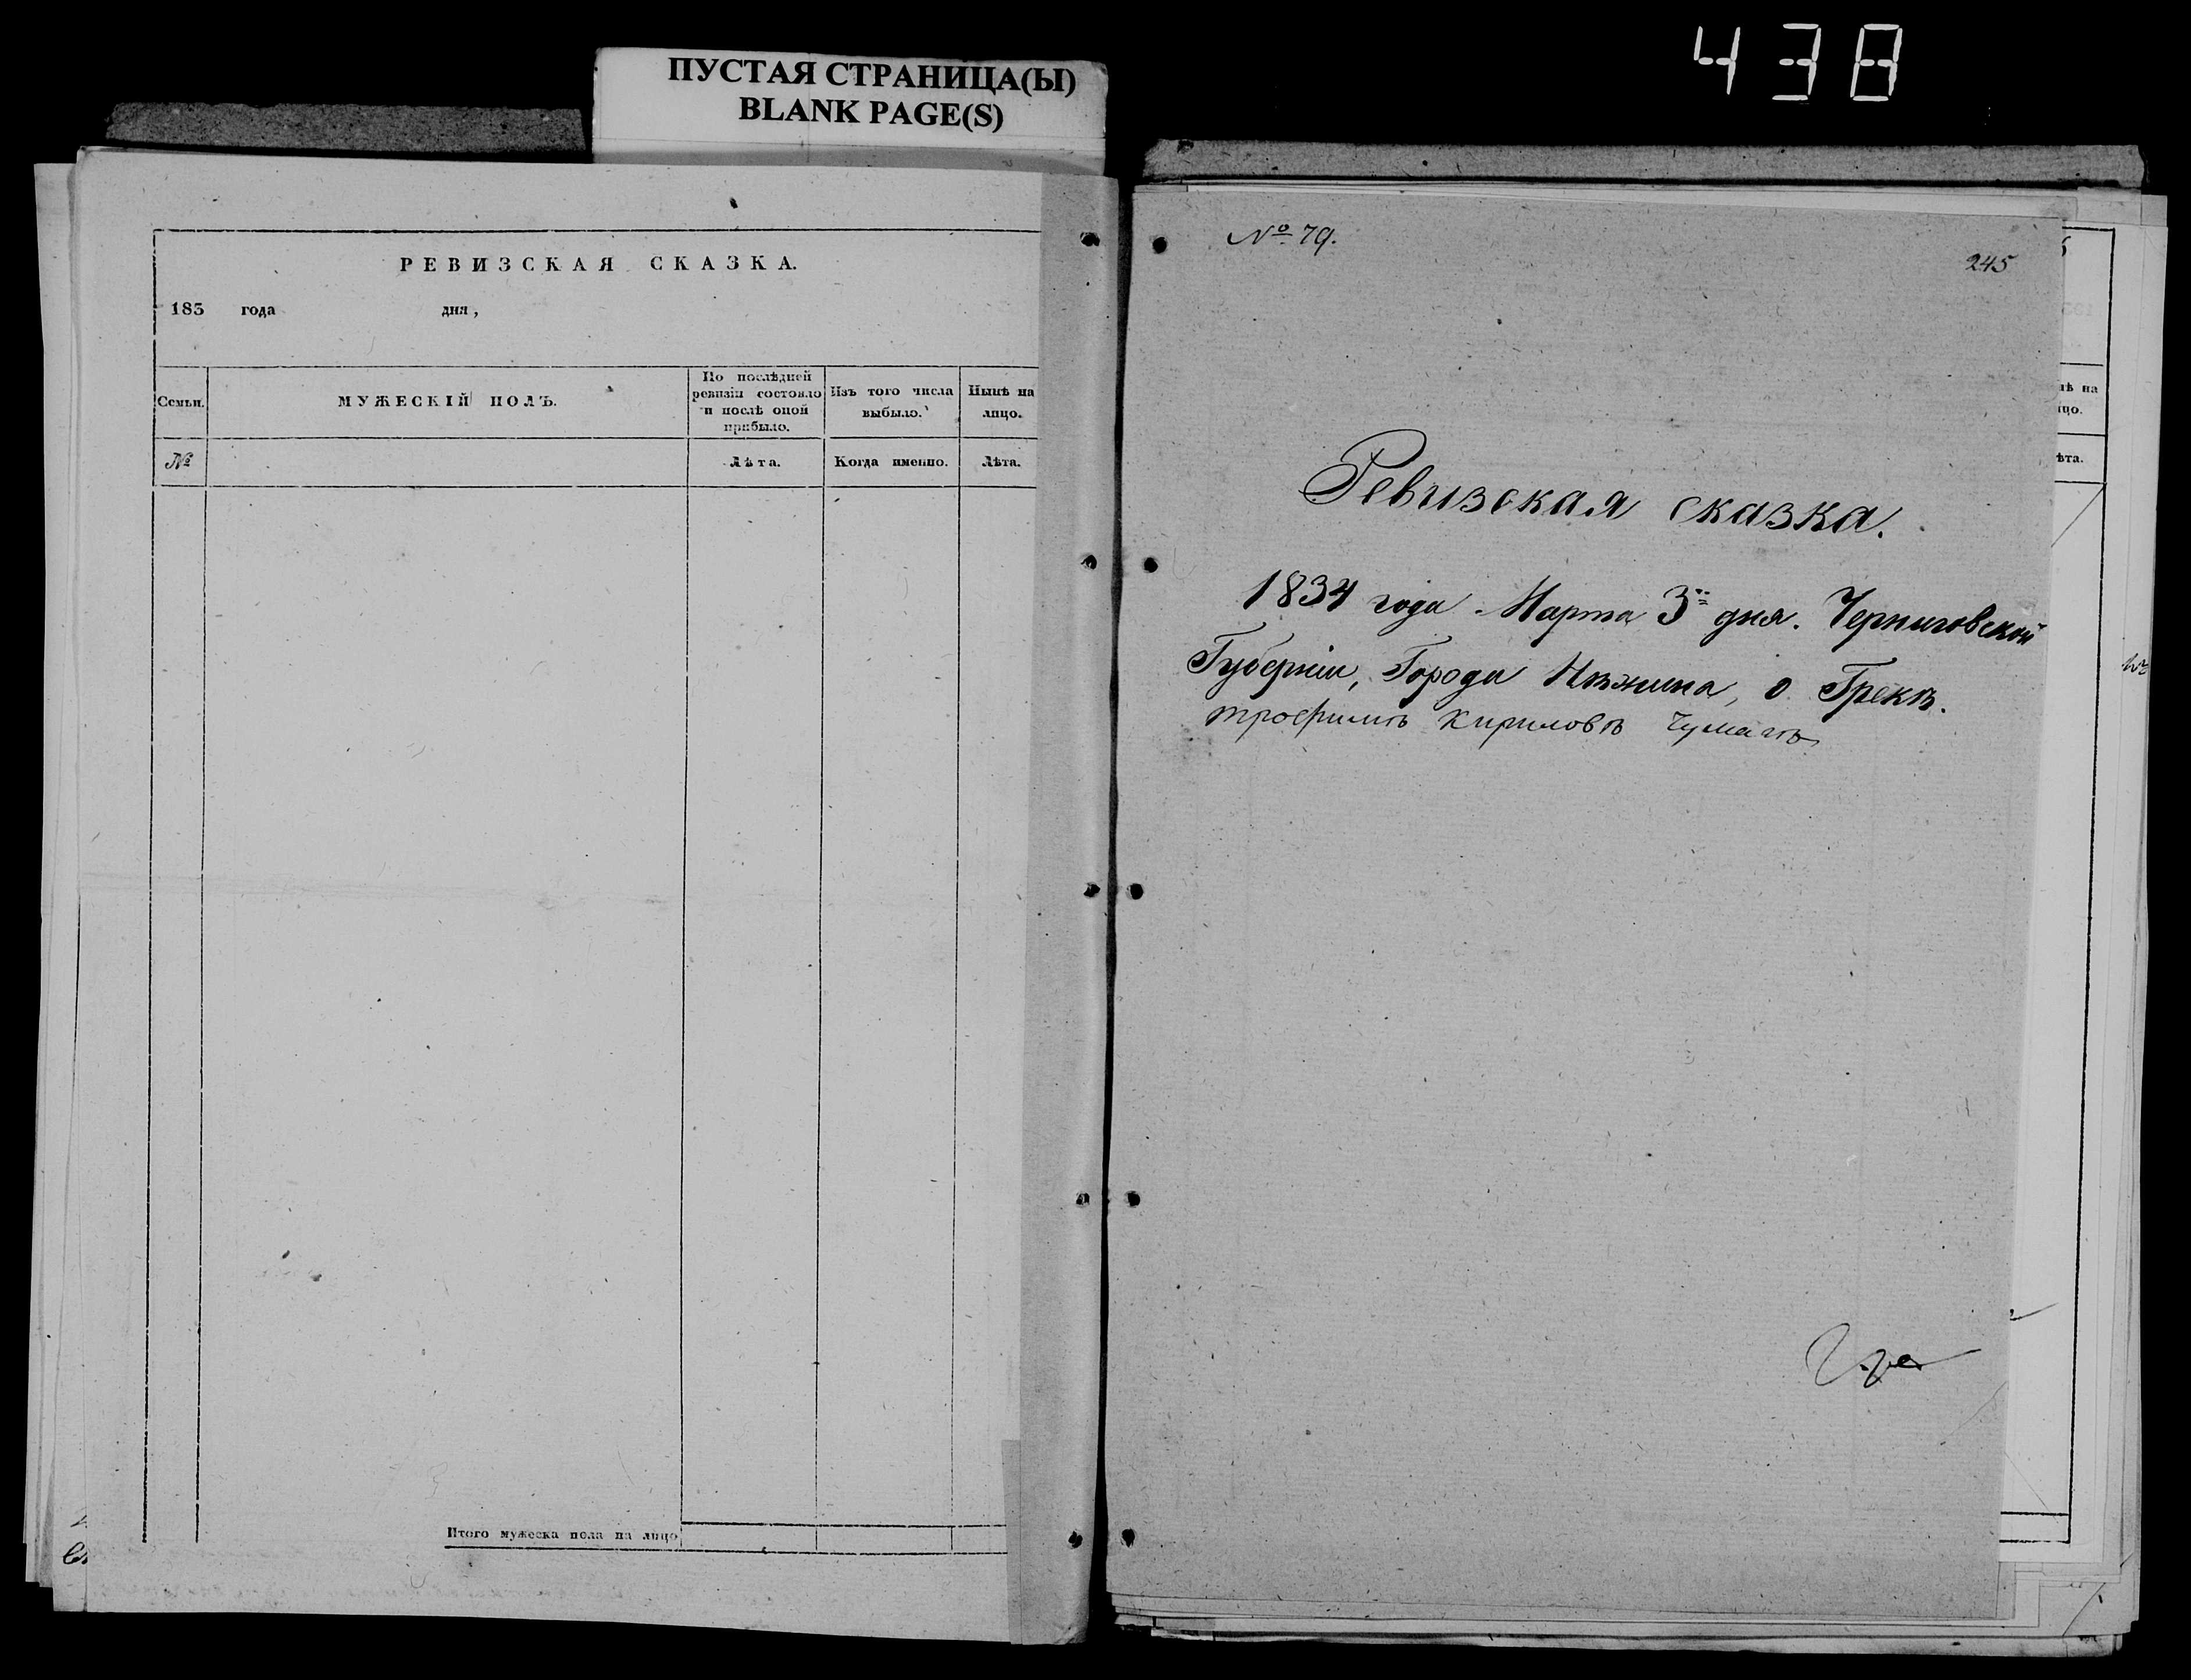 438
ПУСТАЯ СТРАНИЦА(Ы)
BLANK PAGE(S)
РЕВИЗСКАЯ СКАЗКА.
183 года дня,
Семьи.
МУЖЕСКІЙ ПОЛЪ.
По послѣдней
ревизіи состояло
и послѣ оной
прибыло.
Изъ того числа
выбыло.
Нынѣ на
лицо.
№
Лѣта.
Когда именно.
Лѣта.
Итого мужеска пола на лицо
№ 79.
245
Ревизская сказка.
1834 года Марта 3 дня. Черниговской
Губерніи, Города Нѣжина, о Грекѣ.
трофимъ Кириловъ
нѣ на
ицо.
ѣта.